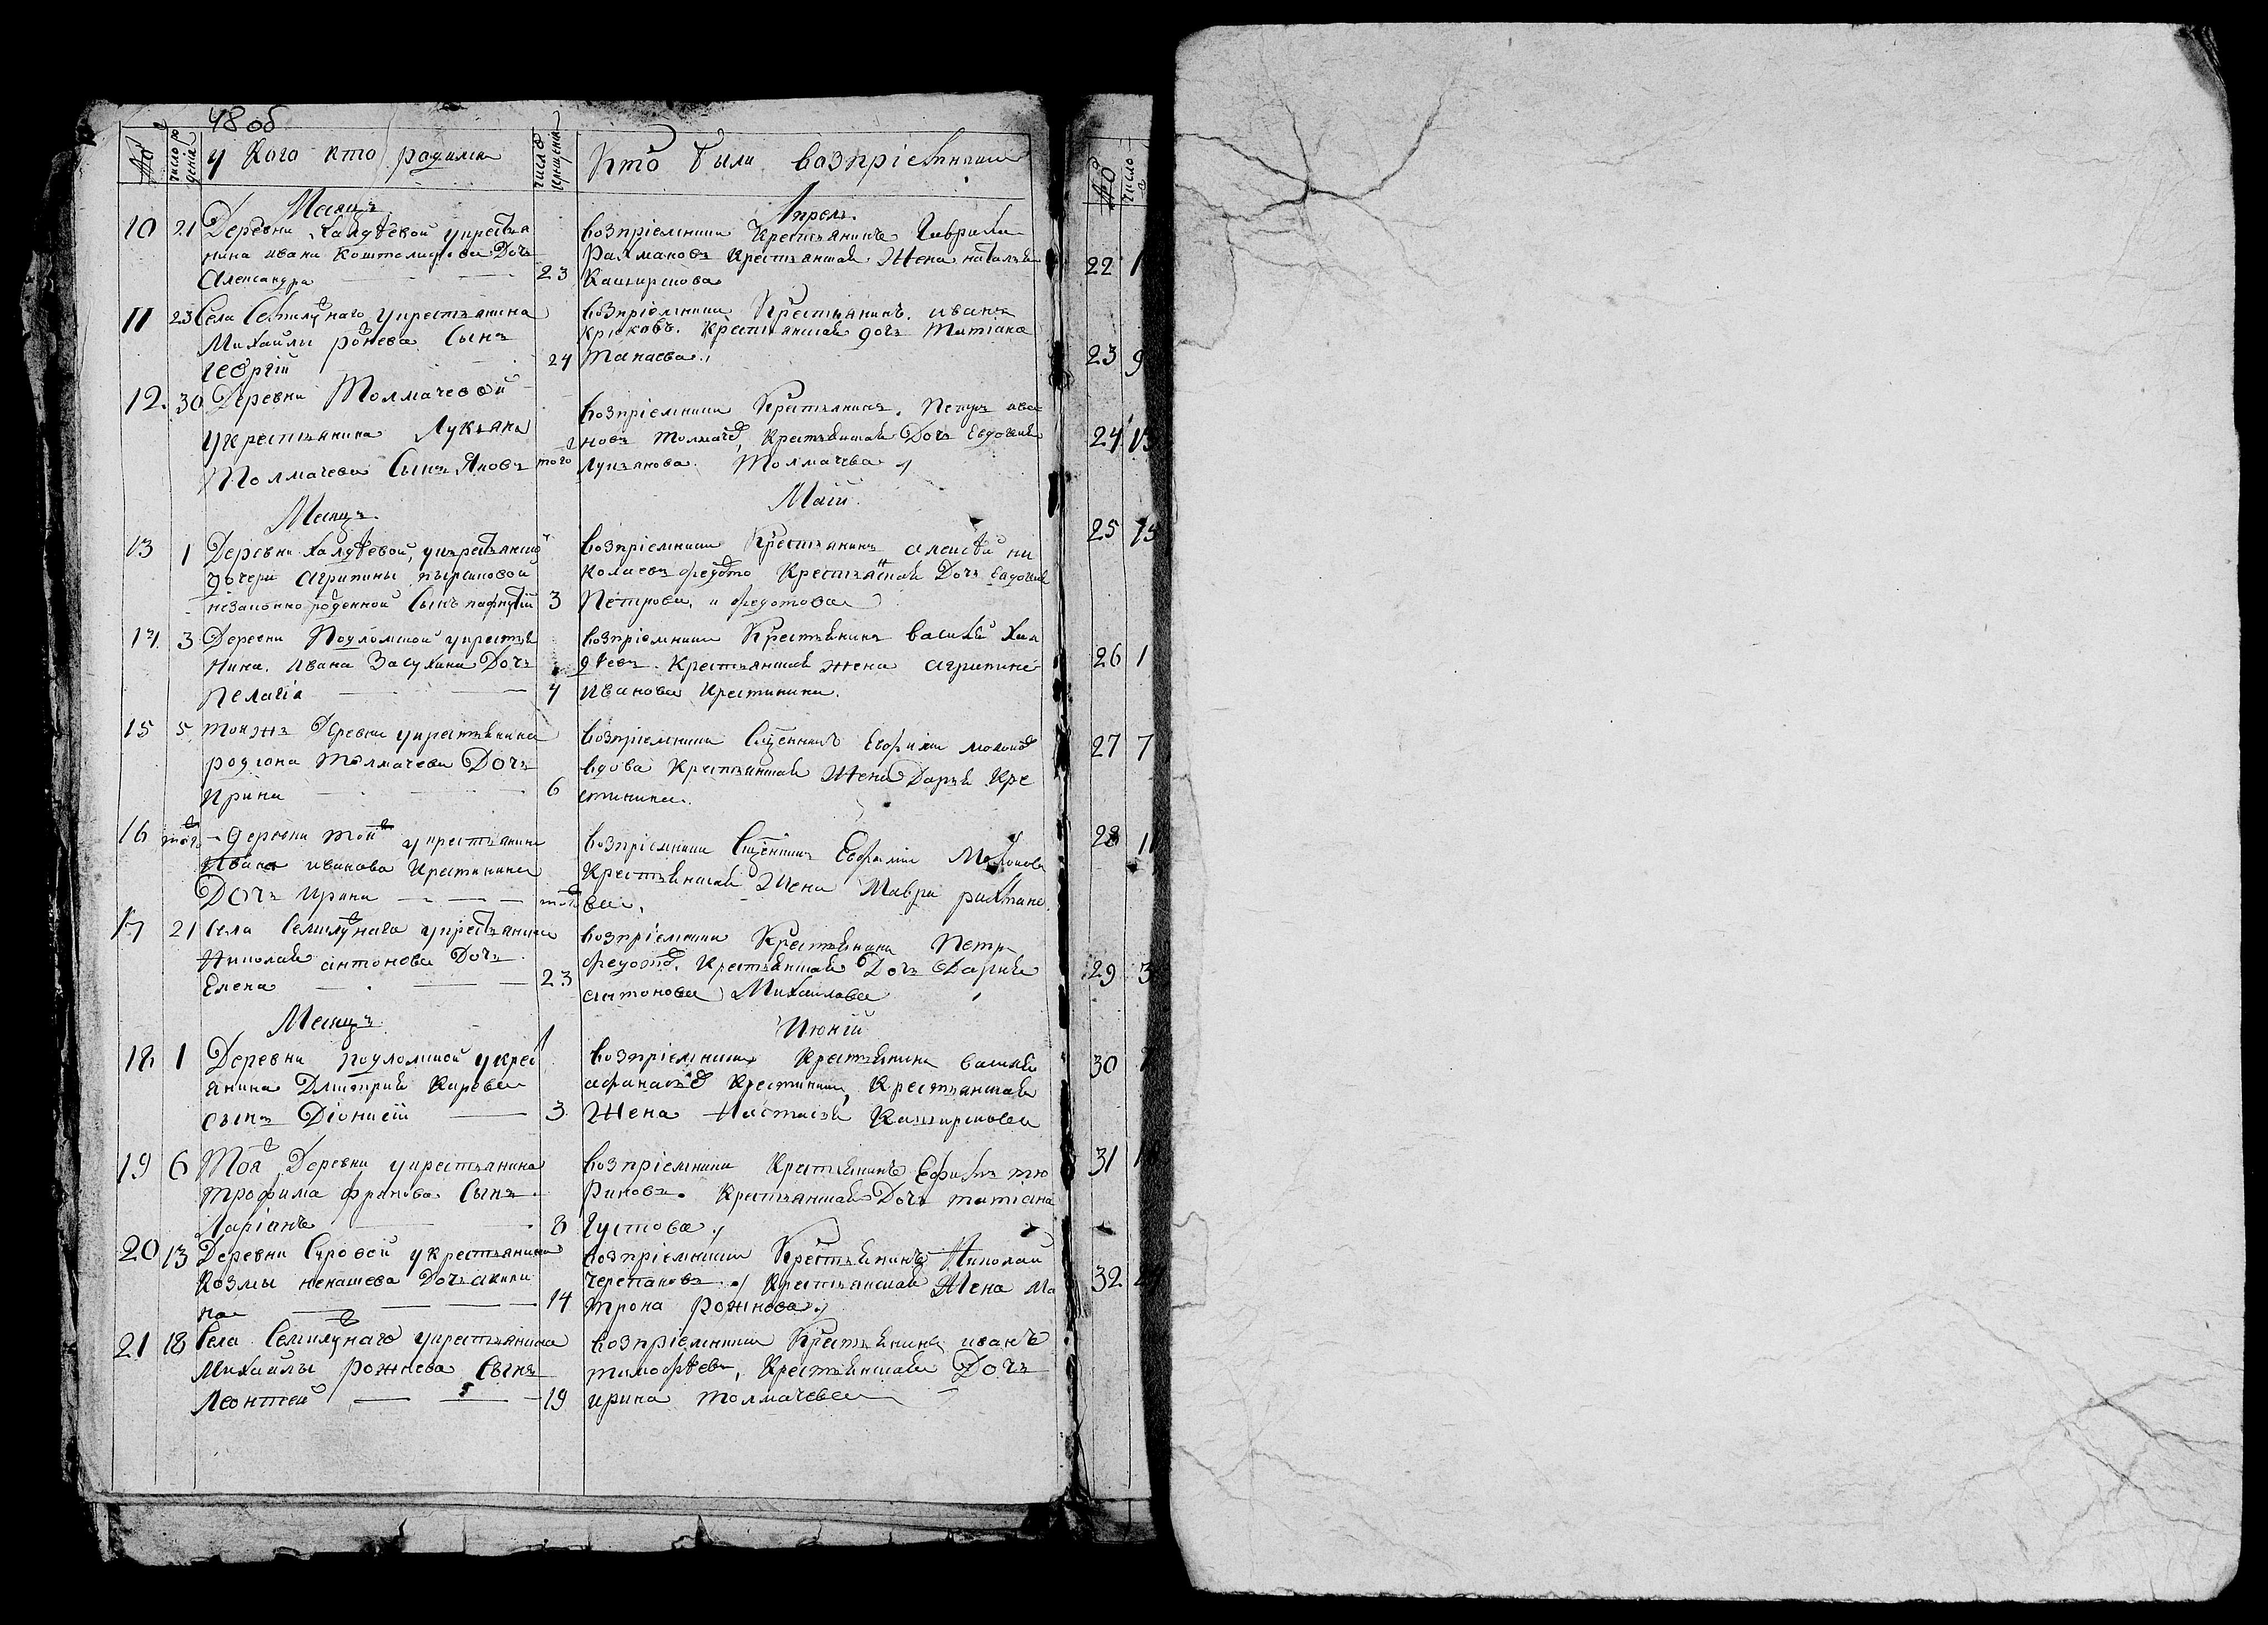 48 об
№ число рождения У кого кто родился число крещения Кто были возприемники
Месяцъ Апрель
10 21 Деревни Халдѣевой у крестья
нина ивана Доч
Александра 23
возприемники Крестьянинъ Гаврила
Рахмановъ Крестьянская Жена наталья
Каширскова
11 23 Села Семилужнаго у крестьянина
Михайлы рожнева Сынъ
георгій 24
возприемники Крестьянинъ иванъ
крюковъ. Крестьянская дочь татіана
танаева
12. 30 Деревни Толмачевой
у крестьянина Лукьяна
Толмачева Сынъ Яковъ того
возприемники Крестьянинъ. Петръ ива
новъ толмачев, Крестьянская Дочь Евдокия
лукьянова Толмачева
Месяцъ Маій
13 1 Деревни Халдѣевой, у крестьянской
дочери агрипины
незаконно рожденной Сынъ пафнутій 3
возприемники Крестьянинъ алексѣй ни
колаевъ Крестьянская Дочь евдокия
Петрова, и федотова
14 3 Деревни Подломской у крестья
нина. ивана Засухина Дочь
пелагія 4
возприемники Крестьянинъ василий хал
дѣевъ. Крестьянская жена агрипина
иванова Крестинина.
15 5 тоежъ Деревни у крестьянина
родиона толмачева Дочь
ирина 6
возприемники Священникъ Евфимий
Крестьянская Жена Дарья Кре
стинина.
16 того деревни той у крестьянина
Ивана иванова Крестинина
Дочь ирина того
возприемники Священникъ Евфимий
Крестьянская Жена Мавра рахмано
ва.
17 21 Села Семилужнаго у крестьянина
Николая антонова Дочь
Елена 23
возприемники Крестьянинъ Петръ
федотов, Крестьянская Дочь Дарья
антонова Михайлова
Месяцъ Июній
18 1 Деревни подломской у крест
янина Дмитрия Карова
сынъ Діонисій 3
возприемники Крестьянинъ василий
афанасьев Крестининъ, Крестьянская
Жена Настасья Каширскова
19 6 Тоя Деревни у крестьянина
трофима фролова Сынъ
Ларіонъ 8
возприемники Крестьянинъ Ефимъ тю
риковъ. Крестьянская Дочь татіана
Густова
20 13 Деревни Суровой у крестьянина
Козмы ненашева Дочь акили
на 14
возприемники Крестьянинъ Николай
черепановъ. Крестьянская Жена ма
трона рожнова
21 18 Села Семилужнаго у крестьянина
Михайлы рожнева Сынъ
Леонтей 19
возприемники Крестьянинъ иванъ
тимофѣевъ, Крестьянская Дочь
ирина толмачева
№ число
22 1
23 9
24 13
25 15
26 1
27 7
28 11
29 3
30
31 1
32